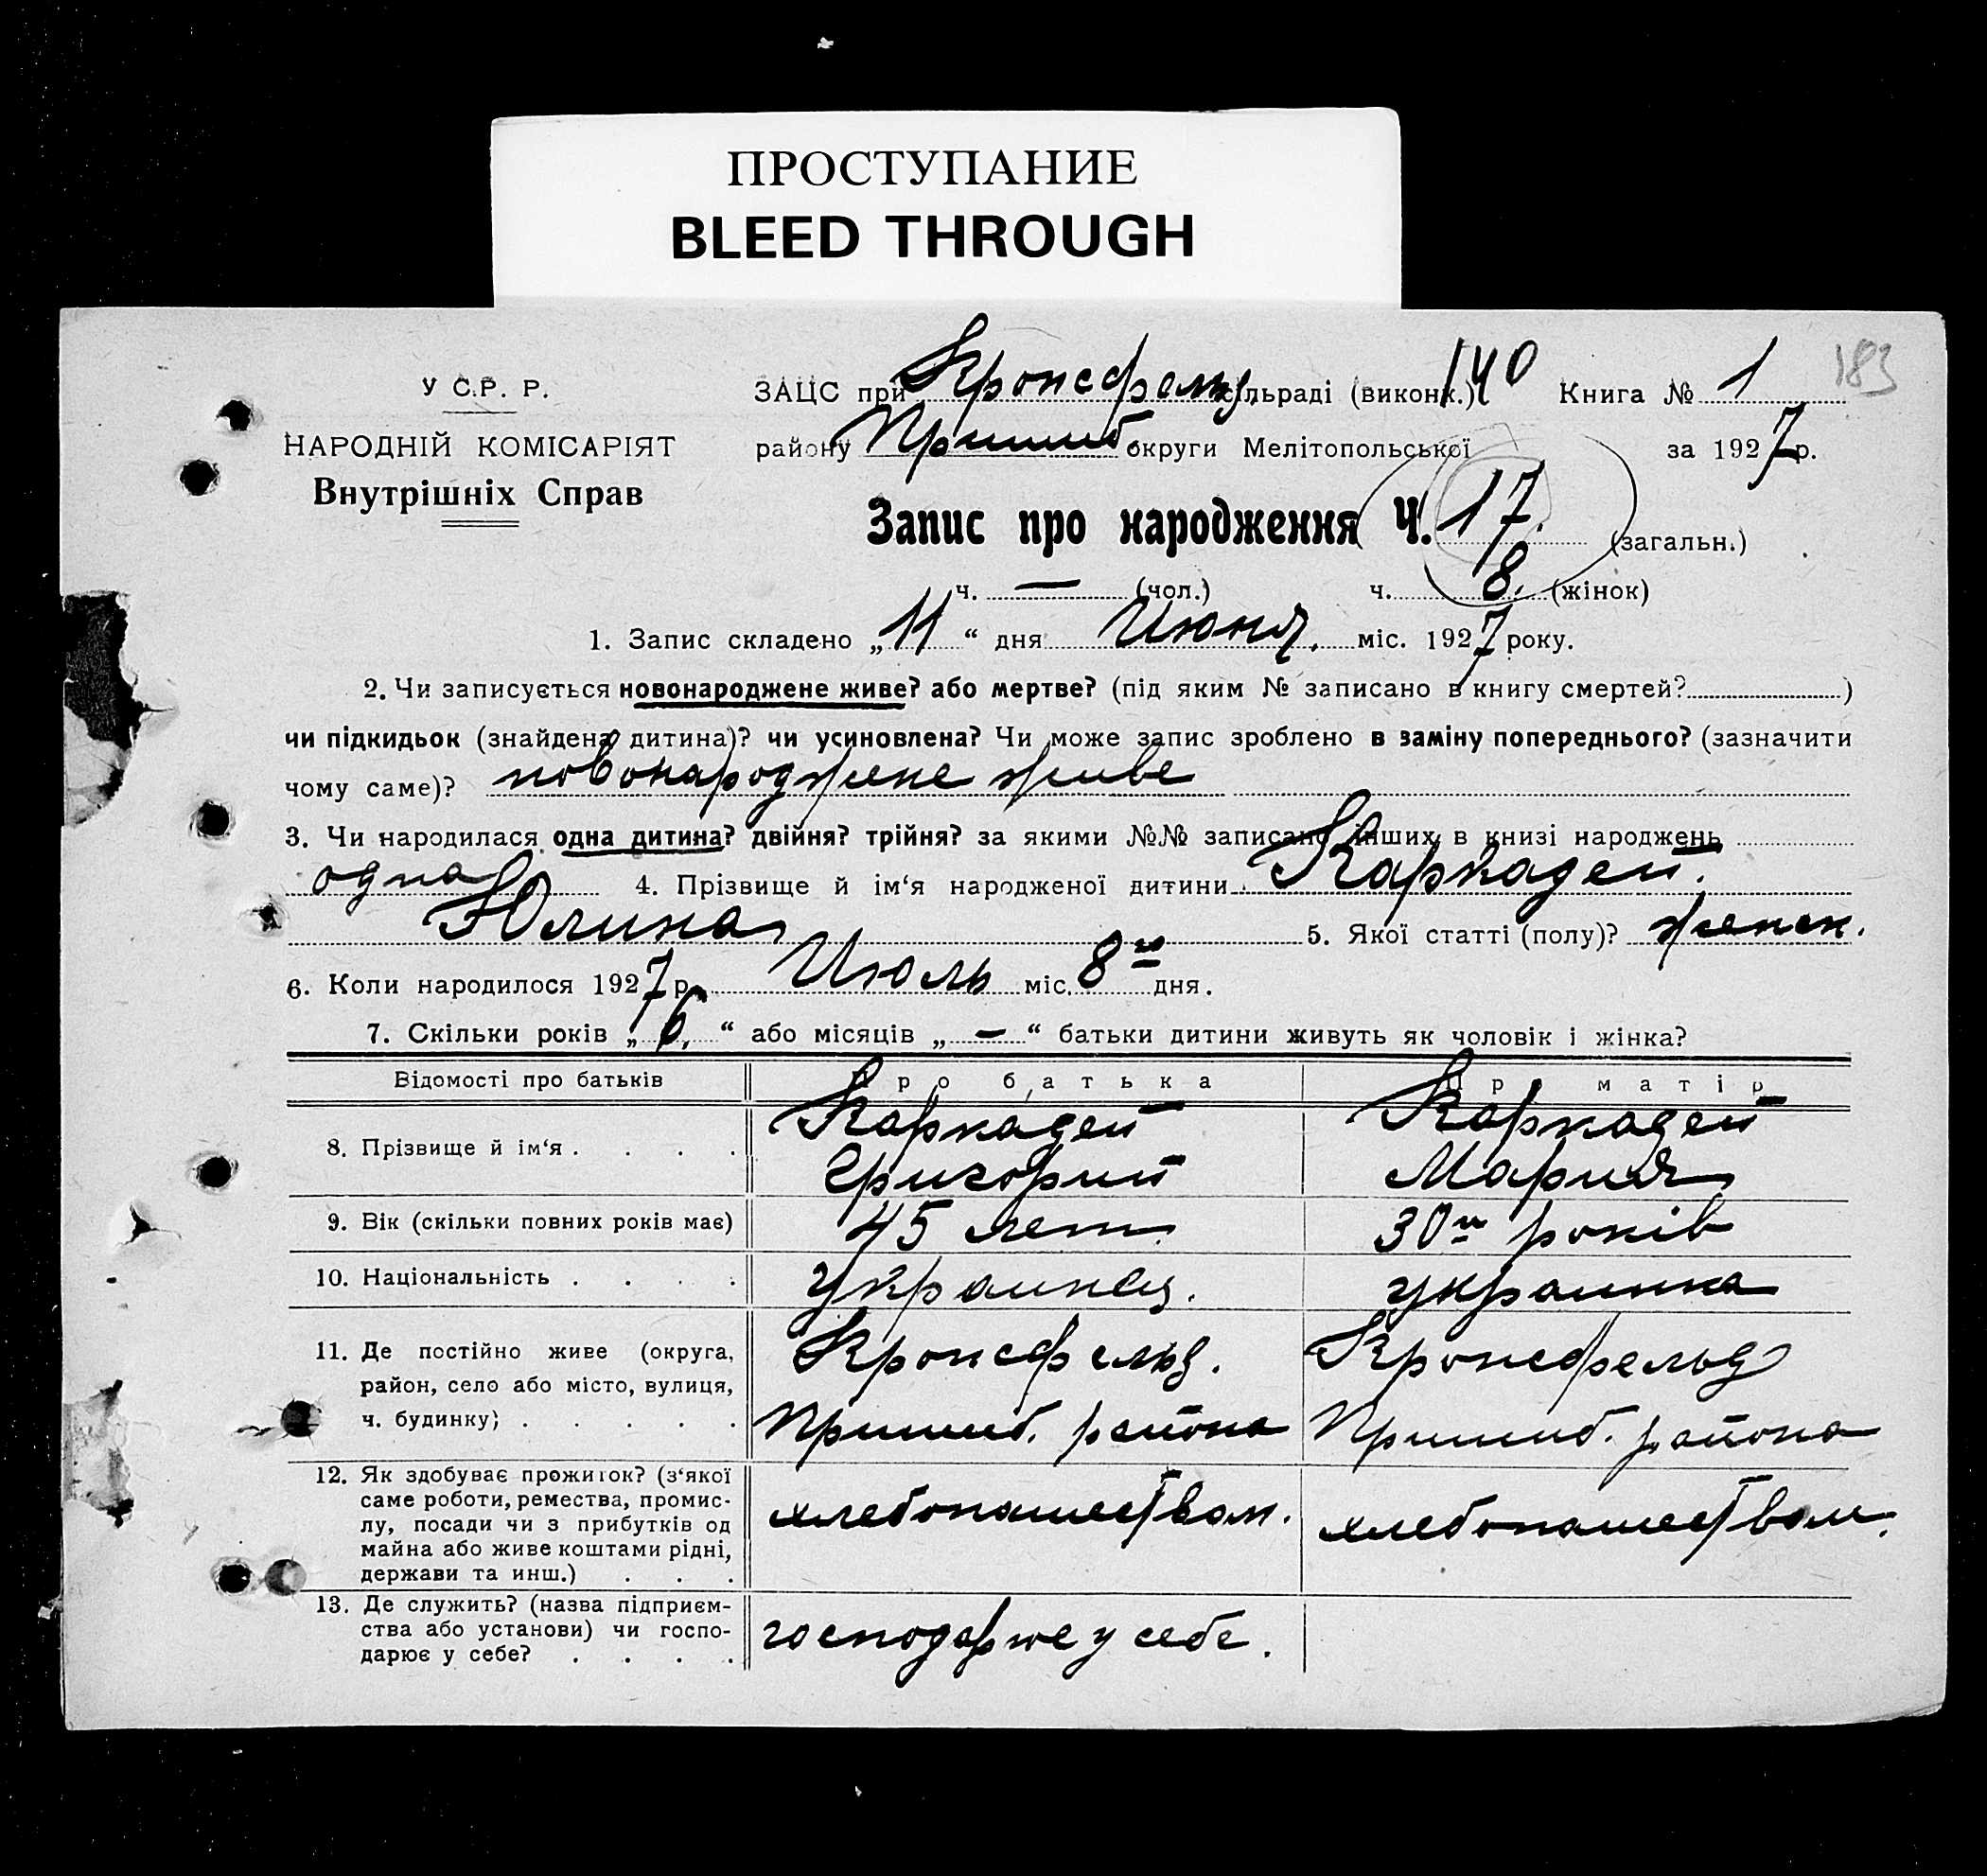 ПРОСТУПАНИЕ
BLEED THROUGH
У С.Р. Р.
НАРОДНІЙ КОМІСАРІЯТ
Внутрішніх Справ
ЗАЦС при Кронсфельд. сільраді (виконк.) 140 Книга № 1 183
району Пришиб. округи Мелітопольської за 1927 р.
Запис про народження Ч. 17. (загальн.)
ч. — (чол.) ч. 8. (жінок)
1. Запис складено „11“ дня Июня. міс. 1927 року.
2. Чи записується новонароджене живе? або мертве? (під яким № записано в книгу смертей? )
чи підкидьок (знайдена дитина)? чи усиновлена? Чи може запис зроблено в заміну попереднього? (зазначити
чому саме)? новонароджене живе
3. Чи народилася одна дитина? двійня? трійня? за якими №№ записано інших в книзі народжень
одна 4. Прізвище й ім‘я народженої дитини Каркадей.
Юлина 5. Якої статті (полу)? женск.
6. Коли народилося 1927 р. Июль міс. 8го дня.
7. Скільки років „6,“ або місяців „—“ батьки дитини живуть як чоловік і жінка?
Відомості про батьків Про батька Про матір
8. Прізвище й ім‘я . . . . Каркадей Григорий Каркадей Мария
9. Вік (скільки повних років має) 45 лет. 30и років
10. Національність . . . . Украинец. украинка
11. Де постійно живе (округа,
район, село або місто, вулиця,
ч. будинку) . . . . . Кронсфельд. Пришиб. района Кронсфельд Пришиб. района
12. Як здобуває прожиток? (з‘якої
саме роботи, ремества, промис-
лу, посади чи з прибутків од
майна або живе коштами рідні,
держави та инш.) . . . хлебопашеством. хлебопашеством.
13. Де служить? (назва підприєм-
ства або установи) чи госпо-
дарює у себе? . . . . господарюе у себе.